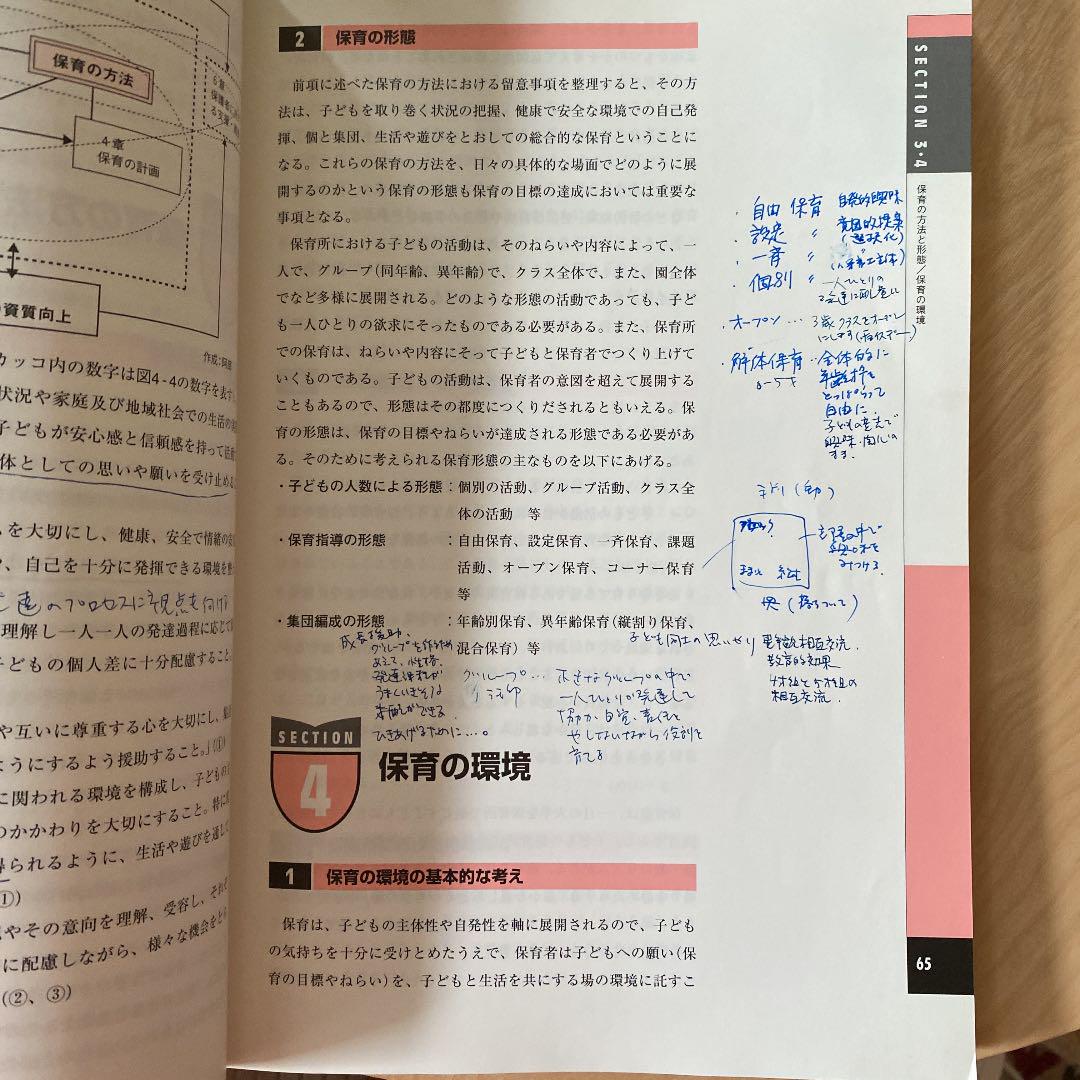 保育の方法
4章
保育の計画
の資質向上
作成：阿部
カッコ内の数字は図4-4の数字を表す
状況や家庭及び地域社会での生活の
子どもが安心感と信頼感を持って活動
体としての思いや願いを受け止め
を大切にし、健康、安全で情緒の
、自己を十分に発揮できる環境を
達のプロセスに視点を向ける
理解し一人一人の発達過程に応じて
子どもの個人差に十分配慮すること。
や互いに尊重する心を大切にし、
ようにするよう援助すること。」(①)
に関われる環境を構成し、子どもの
のかかわりを大切にすること。特に
得られるように、生活や遊びを通して
①)
やその意向を理解、受容し、それぞれ
に配慮しながら、様々な機会をとら
(②、③)
2 保育の形態
前項に述べた保育の方法における留意事項を整理すると、その方
法は、子どもを取り巻く状況の把握、健康で安全な環境での自己発
揮、個と集団、生活や遊びをとおしての総合的な保育ということに
なる。これらの保育の方法を、日々の具体的な場面でどのように展
開するのかという保育の形態も保育の目標の達成においては重要な
事項となる。
保育所における子どもの活動は、そのねらいや内容によって、一
人で、グループ（同年齢、異年齢）で、クラス全体で、また、園全体
でなど多様に展開される。どのような形態の活動であっても、子ど
も一人ひとりの欲求にそったものである必要がある。また、保育所
での保育は、ねらいや内容にそって子どもと保育者でつくり上げて
いくものである。子どもの活動は、保育者の意図を超えて展開する
こともあるので、形態はその都度につくりだされるともいえる。保
育の形態は、保育の目標やねらいが達成される形態である必要があ
る。そのために考えられる保育形態の主なものを以下にあげる。
・子どもの人数による形態：個別の活動、グループ活動、クラス全
体の活動 等
・保育指導の形態 ：自由保育、設定保育、一斉保育、課題
活動、オープン保育、コーナー保育
等
・集団編成の形態 ：年齢別保育、異年齢保育（縦割り保育、
混合保育）等
成長援助、
グループを作るため
グループ…
活動
一人ひとりが発達して
協力、自覚、責任を
育てる
子ども同士の思いやり
異年齢相互交流、
教育的効果
相互交流
SECTION
4 保育の環境
1 保育の環境の基本的な考え
保育は、子どもの主体性や自発性を軸に展開されるので、子ども
の気持ちを十分に受けとめたうえで、保育者は子どもへの願い（保
育の目標やねらい）を、子どもと生活を共にする場の環境に託すこ
・自由 保育 自発的興味
・設定 〃 意図的提案
・一斉 〃
・個別 〃 一人ひとりの
・オープン… 3歳クラスをオープン
・解体保育… 全体的に
0〜5才 年齢枠を
とっぱらって
自由に、
SECTION 3・4
保育の方法と形態／保育の環境
65